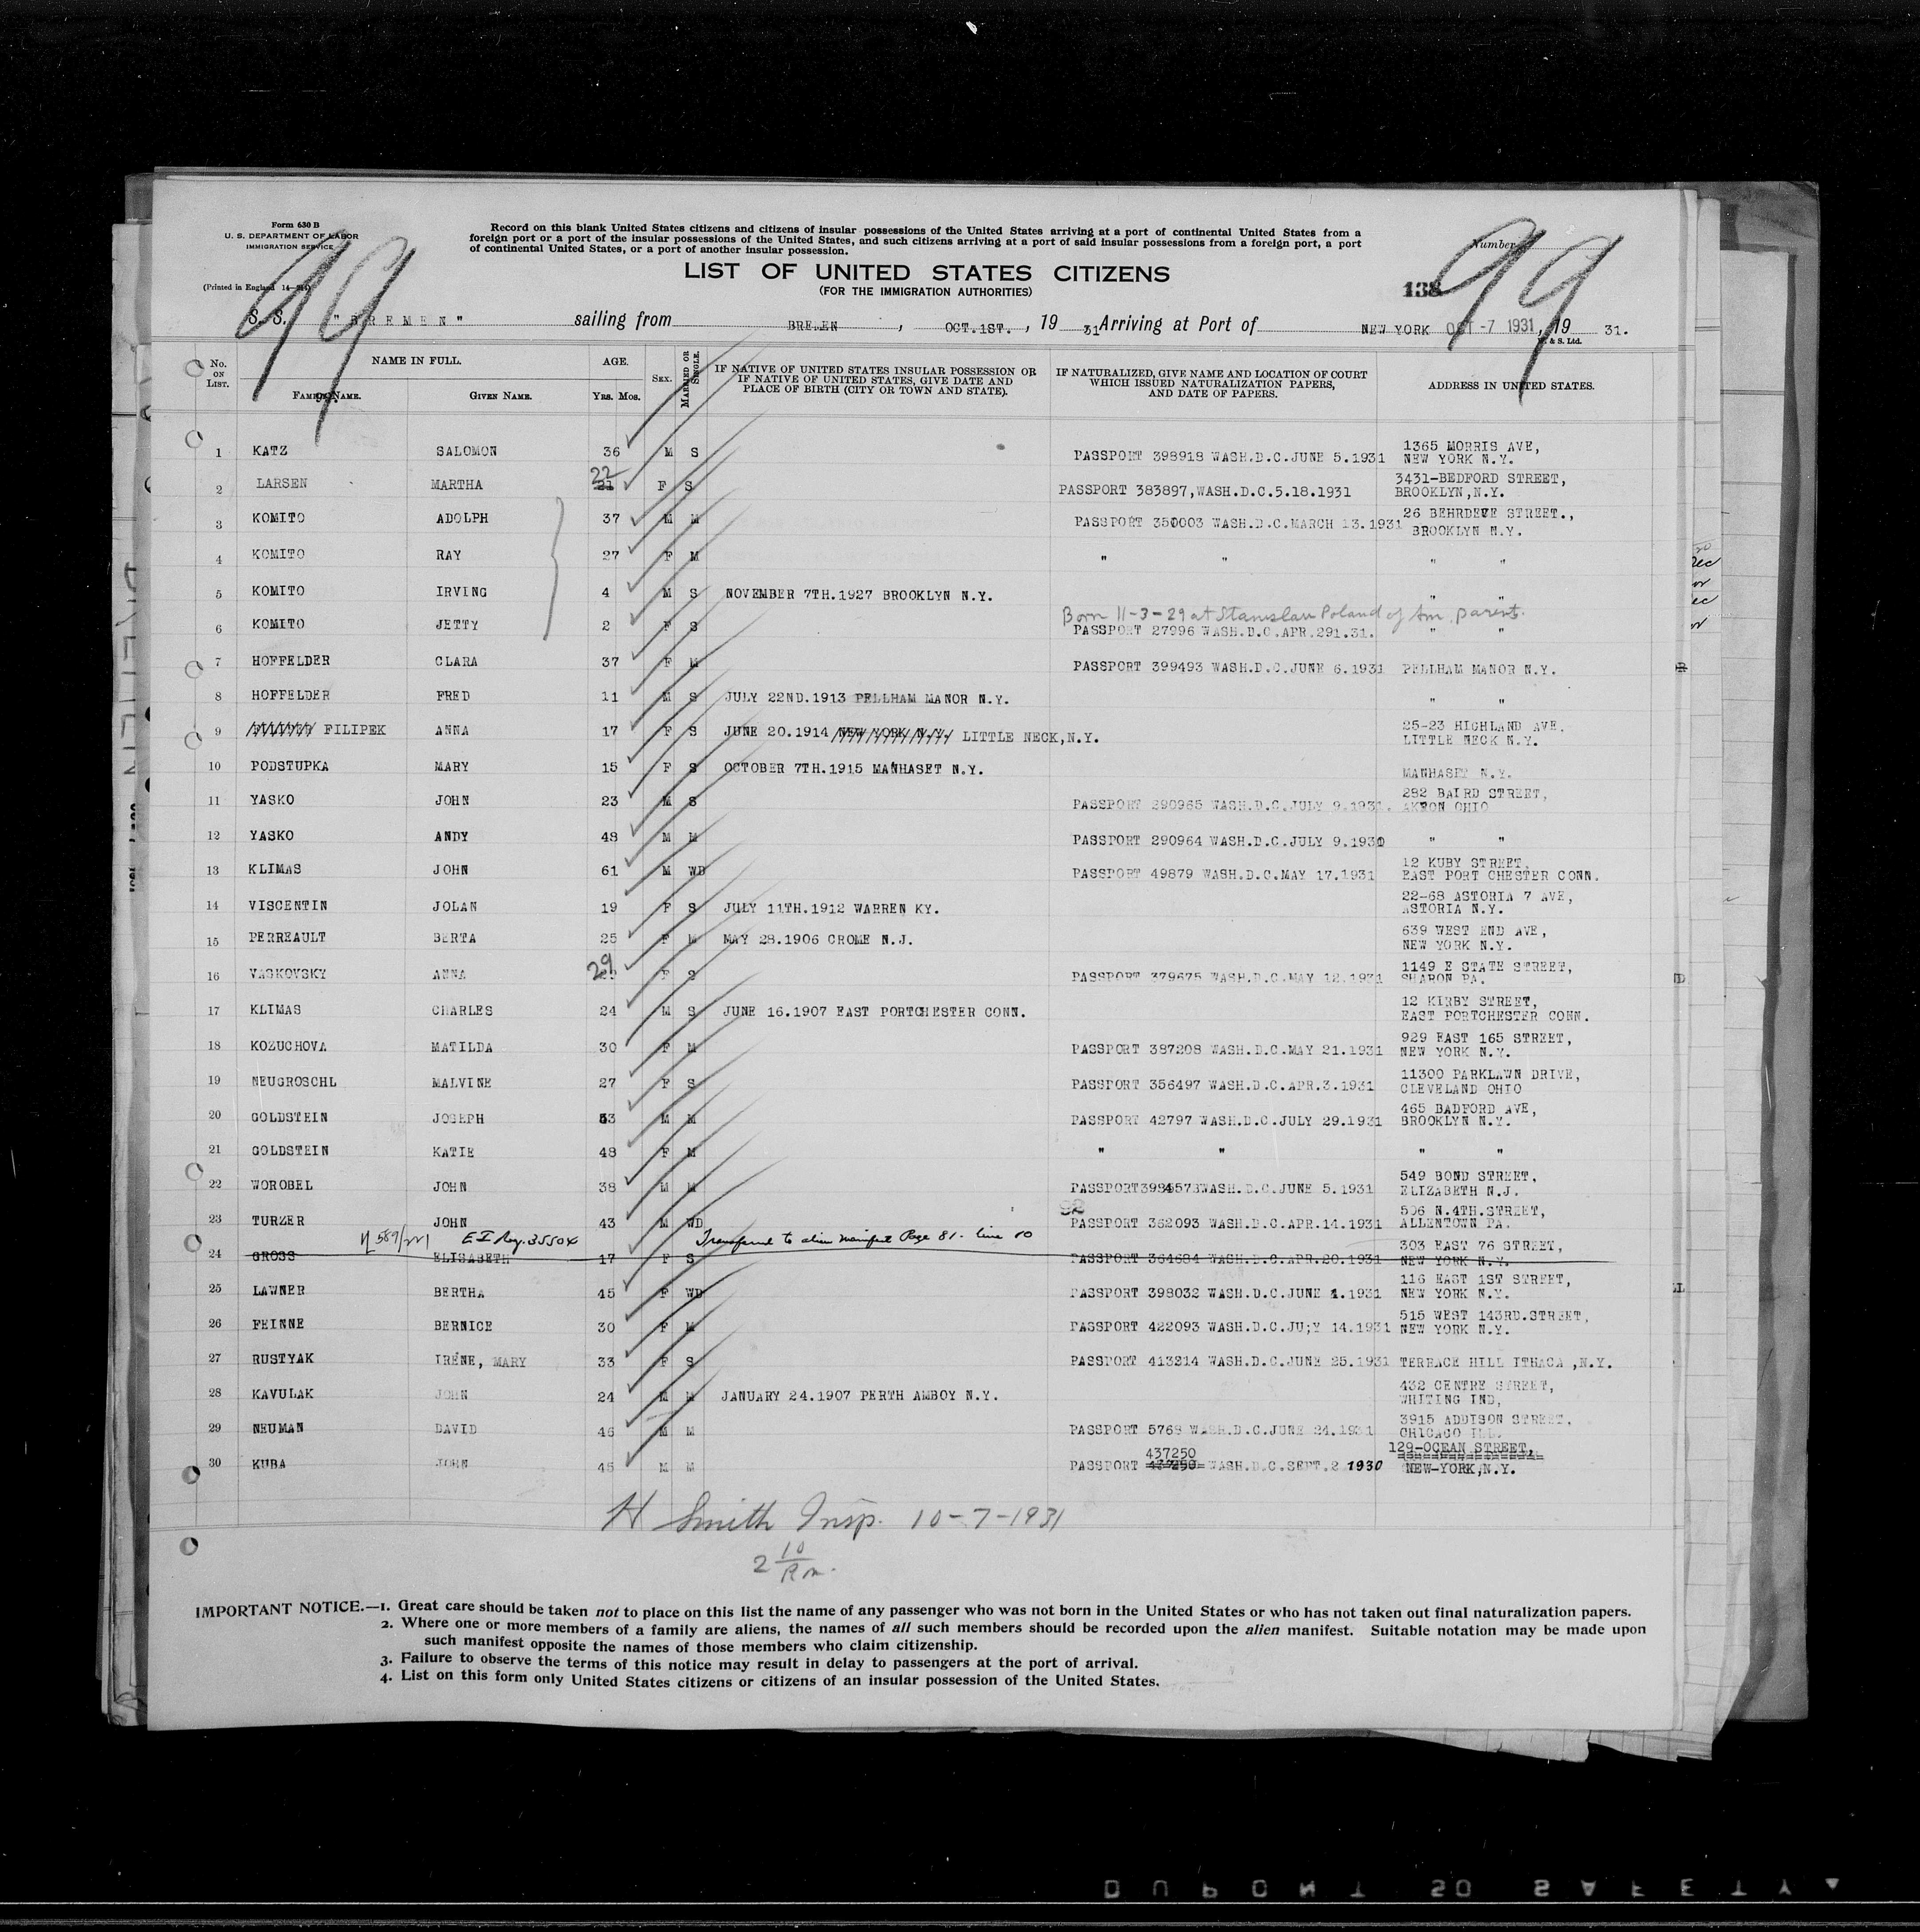 Form 630 B
U. S. DEPARTMENT OF LABOR
IMMIGRATION SERVICE
(Printed in England
Record on this blank United States citizens and citizens of insular possessions of the United States arriving at a port of continental United States from a
foreign port or a port of the insular possessions of the United States, and such citizens arriving at a port of said insular possessions from a foreign port, a port
of continental United States, or a port of another insular possession.
Number
99
99
LIST OF UNITED STATES CITIZENS
(FOR THE IMMIGRATION AUTHORITIES)
138
S. S. "BREMEN" sailing from BREMEN, OCT.1ST., 19 31 Arriving at Port of NEW YORK OCT -7 1931, 19 31.
& S. Ltd.
No. ON LIST. NAME IN FULL. AGE. SEX. MARRIED OR SINGLE. IF NATIVE OF UNITED STATES INSULAR POSSESSION OR IF NATIVE OF UNITED STATES, GIVE DATE AND PLACE OF BIRTH (CITY OR TOWN AND STATE). IF NATURALIZED, GIVE NAME AND LOCATION OF COURT WHICH ISSUED NATURALIZATION PAPERS, AND DATE OF PAPERS. ADDRESS IN UNITED STATES.
FAMILY NAME. GIVEN NAME. YRS. MOS.
1 KATZ SALOMON 36 M S PASSPORT 398918 WASH.D.C.JUNE 5.1931 1365 MORRIS AVE, NEW YORK N.Y.
2 LARSEN MARTHA 22 21 F S PASSPORT 383897,WASH.D.C.5.18.1931 3431-BEDFORD STREET, BROOKLYN,N.Y.
3 KOMITO ADOLPH 37 M M PASSPORT 350003 WASH.D.C.MARCH 13.1931 26 BEHRDEVE STREET., BROOKLYN N.Y.
4 KOMITO RAY 27 F M " " " "
5 KOMITO IRVING 4 M S NOVEMBER 7TH.1927 BROOKLYN N.Y. " "
Born 11-3-29 at Stanislau Poland of Am. parents.
6 KOMITO JETTY 2 F S PASSPORT 27996 WASH.D.C.APR.291.31. " "
7 HOFFELDER CLARA 37 F M PASSPORT 399493 WASH.D.C.JUNE 6.1931 PELLHAM MANOR N.Y.
8 HOFFELDER FRED 11 M S JULY 22ND.1913 PELLHAM MANOR N.Y. " "
9 FILIPEK ANNA 17 F S JUNE 20.1914 NEW YORK N.Y. LITTLE NECK,N.Y. 25-23 HIGHLAND AVE, LITTLE NECK N.Y.
10 PODSTUPKA MARY 15 F S OCTOBER 7TH.1915 MANHASET N.Y. MANHASET N.Y.
11 YASKO JOHN 23 M S PASSPORT 290965 WASH.D.C.JULY 9.1931. 282 BAIRD STREET, AKRON OHIO
12 YASKO ANDY 48 M M PASSPORT 290964 WASH.D.C.JULY 9.1930 " "
13 KLIMAS JOHN 61 M WD PASSPORT 49879 WASH.D.C.MAY 17.1931 12 KUBY STREET, EAST PORT CHESTER CONN.
14 VISCENTIN JOLAN 19 F S JULY 11TH.1912 WARREN KY. 22-68 ASTORIA 7 AVE, ASTORIA N.Y.
15 PERREAULT BERTA 25 F M MAY 28.1906 CROME N.J. 639 WEST END AVE, NEW YORK N.Y.
16 VASKOVSKY ANNA 29 F S PASSPORT 379675 WASH.D.C.MAY 12.1931 1149 E STATE STREET, SHARON PA.
17 KLIMAS CHARLES 24 M S JUNE 16.1907 EAST PORTCHESTER CONN. 12 KIRBY STREET, EAST PORTCHESTER CONN.
18 KOZUCHOVA MATILDA 30 F M PASSPORT 387208 WASH.D.C.MAY 21.1931 929 EAST 165 STREET, NEW YORK N.Y.
19 NEUGROSCHL MALVINE 27 F S PASSPORT 356497 WASH.D.C.APR.3.1931 11300 PARKLAWN DRIVE, CLEVELAND OHIO
20 GOLDSTEIN JOSEPH 53 M M PASSPORT 42797 WASH.D.C.JULY 29.1931 465 BADFORD AVE, BROOKLYN N.Y.
21 GOLDSTEIN KATIE 48 F M " " " "
22 WOROBEL JOHN 38 M M WASH.D.C.JUNE 5.1931 549 BOND STREET, ELIZABETH N.J.
23 TURZER JOHN 43 M WD PASSPORT 362093 WASH.D.C.APR.14.1931 506 N.4TH.STREET, ALLENTOWN PA.
E I Reg. 35504 Transferred to alien manifest Page 81 - line 10
24 GROSS ELISABETH 17 F S PASSPORT 364684 WASH.D.C.APR.20.1931 303 EAST 76 STREET, NEW YORK N.Y.
25 LAWNER BERTHA 45 F WD PASSPORT 398032 WASH.D.C.JUNE 4.1931 116 EAST 1ST STREET, NEW YORK N.Y.
26 FEINNE BERNICE 30 F M PASSPORT 422093 WASH.D.C.JU;Y 14.1931 515 WEST 143RD.STREET, NEW YORK N.Y.
27 RUSTYAK IRENE, MARY 33 F S PASSPORT 413214 WASH.D.C.JUNE 25.1931 TERRACE HILL ITHACA ,N.Y.
28 KAVULAK JOHN 24 M M JANUARY 24.1907 PERTH AMBOY N.Y. 432 CENTRE STREET, WHITING IND,
29 NEUMAN DAVID 46 M M PASSPORT 5768 WASH.D.C.JUNE 24.1931 3915 ADDISON STREET, CHICAGO ILL.
30 KUBA JOHN 45 M M PASSPORT 437250 WASH.D.C.SEPT.2 1930 129-OCEAN STREET, NEW-YORK,N.Y.
H Smith Insp. 10-7-1931
2 10/Pm.
IMPORTANT NOTICE.—1. Great care should be taken not to place on this list the name of any passenger who was not born in the United States or who has not taken out final naturalization papers.
2. Where one or more members of a family are aliens, the names of all such members should be recorded upon the alien manifest. Suitable notation may be made upon
such manifest opposite the names of those members who claim citizenship.
3. Failure to observe the terms of this notice may result in delay to passengers at the port of arrival.
4. List on this form only United States citizens or citizens of an insular possession of the United States.
DUPONT SO SAFETY